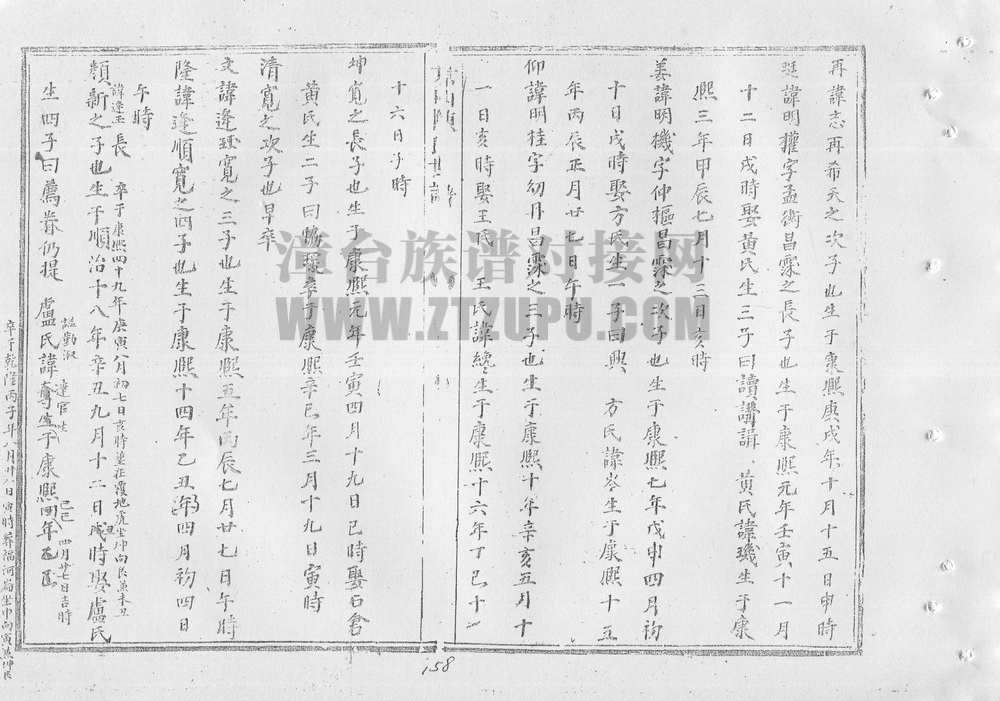 再諱志再希天之次子也生于康熙庚戌年十月十五日申時
珽諱明權字孟衡昌霖之長子也生于康熙元年壬寅十一月
十二日戌時娶黃氏生三子曰讀講諱 黃氏諱璣生于康
熙三年甲辰七月十三日亥時
姜諱明機字仲樞昌霖之次子也生于康熙七年戊申四月初
十日戌時娶方氏生一子曰興 方氏諱岑生于康熙十五
年丙辰正月廿七日午時
仰諱明桂字幼丹昌霖之三子也生于康熙十年辛亥五月十
一日亥時娶王氏 王氏諱總生于康熙十六年丁巳十一
十六日子時
坤寬之長子也生于康熙元年壬寅四月十九日巳時娶石倉
黃氏生二子曰 卒于康熙辛巳年三月十九日寅時
清寬之次子也早卒
文諱逢珪寬之三子也生于康熙五年丙辰七月廿七日午時
隆諱逢順寬之四子也生于康熙十四年乙丑年四月初四日
午時
諱逢玉 長 卒于康熙四十九年庚寅八月初七日亥時
顏新之子也生于順治十八年辛丑九月十二日戌時娶盧氏
生四子曰薦 仍提 盧氏諱 生于康熙 年
諡勤淑
己巳 四月廿七日吉時
卒于乾隆丙子年八月廿八日寅時葬
158
漳台族谱对接网
WWW.ZTZUPU.COM